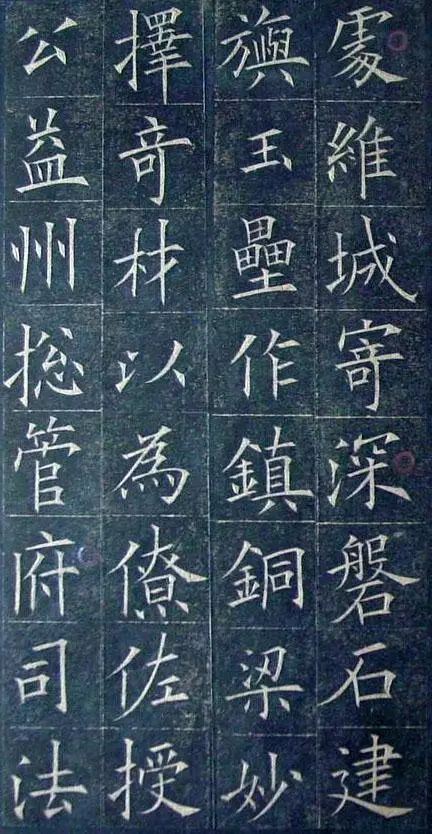 處維城寄深磐石建
旟玉壘作鎮銅梁妙
擇奇材以為僚佐授
公益州捴管府司法